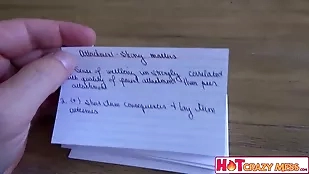 Attachment - Strong matters
1. Sense of wellbeing is strongly correlated
with quality of parent attachment than peer
attachment
2. (+) Short term consequences + long term
outcomes
HOTCRAZYMESS.COM